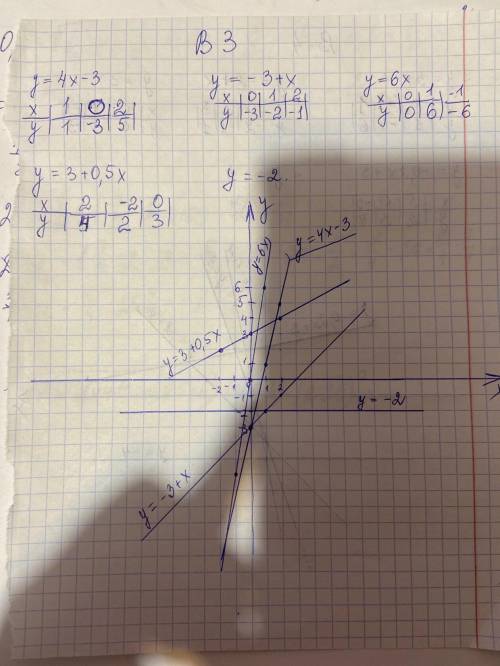 В 3
y = 4x - 3
x | 1 | 0 | 2
y | 1 | -3 | 5
y = -3 + x
x | 0 | 1 | 2
y | -3 | -2 | -1
y = 6x
x | 0 | 1 | -1
y | 0 | 6 | -6
y = 3 + 0,5x
x | 2 | -2 | 0
y | 4 | 2 | 3
y = -2
y
y = 6x
y = 4x - 3
6
5
4
3
1
y = 3 + 0,5x
-2 -1 1 2
x
-1
y = -2
-3
y = -3 + x